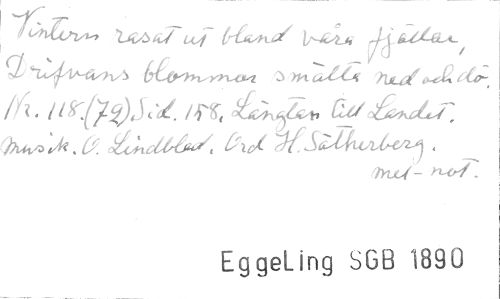 Vintern rasat ut bland våra fjällar,
Drifvans blommor smälta ned och dö.
Nr. 118.(72) Sid. 158. Längtan till Landet.
Musik. O. Lindblad. Ord H. Sätherberg.
met-not.
EggeLing SGB 1890